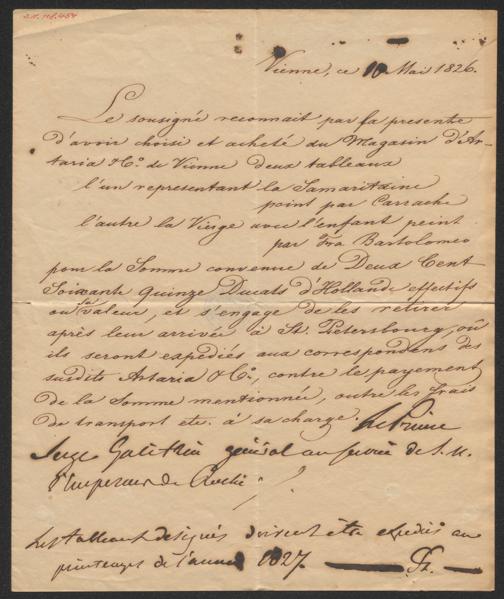 Vienne, ce 10 Mai 1826.
Le sousigné reconnait par sa presente
d'avoir choisi et acheté du Magasin d'Ar-
taria & Co. de Vienne deux tableaux
l'un representant la Samaritaine
peint par Carrache
l'autre la Vierge avec l'enfant peint
par Fra Bartolomeo
pour la Somme convenue de Deux Cent
Soixante Quinze Ducats d'Hollande effectifs
ou sa valeur, et s'engage de les retirer
après leur arrivée à St. Petersbourg, où
ils seront expediés aux correspondens des
susdits Artaria & Co., contre le payement
de la Somme mentionnée, outre les frais
de transport etc. à sa charge. Le Prince
Serge Galitzin général au service de S. M.
l'Empereur de Russie
Les tableaux designés doivent être expediés au
printemps de l'année 1827.